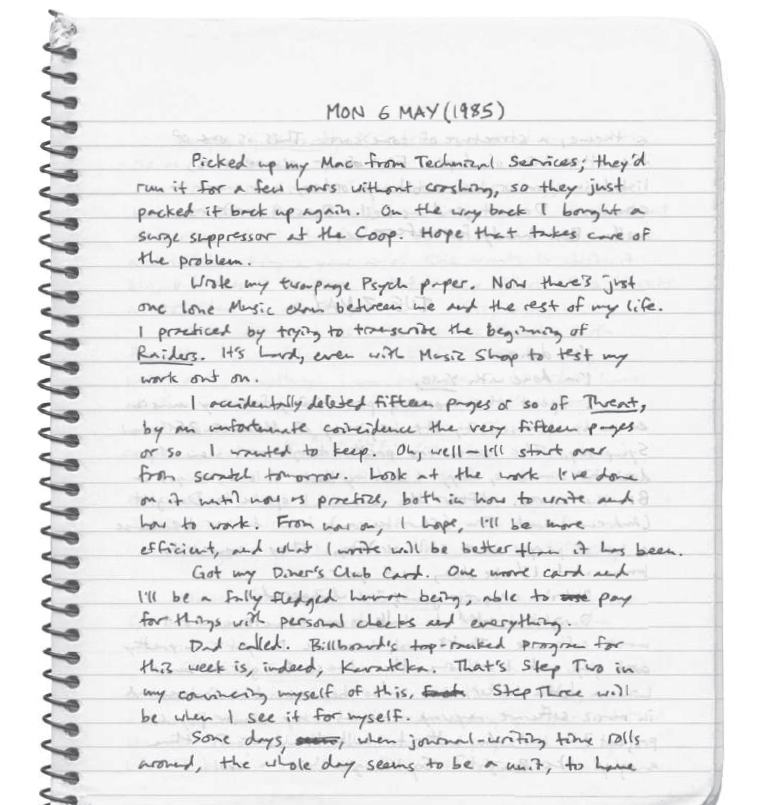 MON 6 MAY (1985)
Picked up my Mac from Technical Services; they'd
run it for a few hours without crashing, so they just
packed it back up again. On the way back I bought a
surge suppressor at the Coop. Hope that takes care of
the problem.
Wrote my two-page Psych paper. Now there's just
one lone Music exam between me and the rest of my life.
I practiced by trying to transcribe the beginning of
Raiders. It's hard, even with Music Shop to test my
work out on.
I accidentally deleted fifteen pages or so of Threat,
by an unfortunate coincidence the very fifteen pages
or so I wanted to keep. Oh, well – I'll start over
from scratch tomorrow. Look at the work I've done
on it until now as practice, both in how to write and
how to work. From now on, I hope, I'll be more
efficient, and what I write will be better than it has been.
Got my Diner's Club Card. One more card and
I'll be a fully fledged human being, able to use pay
for things with personal checks and everything.
Dad called. Billboard's top-ranked program for
this week is, indeed, Karateka. That's Step Two in
my convincing myself of this. Step Three will
be when I see it for myself.
Some days, when journal-writing time rolls
around, the whole day seems to be a unit, to have